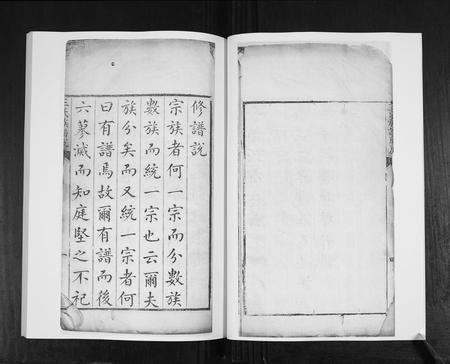 修譜說
宗族者何一宗而分數族
數族而統一宗也云爾夫
族分矣而又統一宗者何
曰有譜焉故爾有譜而後
六蓼滅而知庭堅之不祀